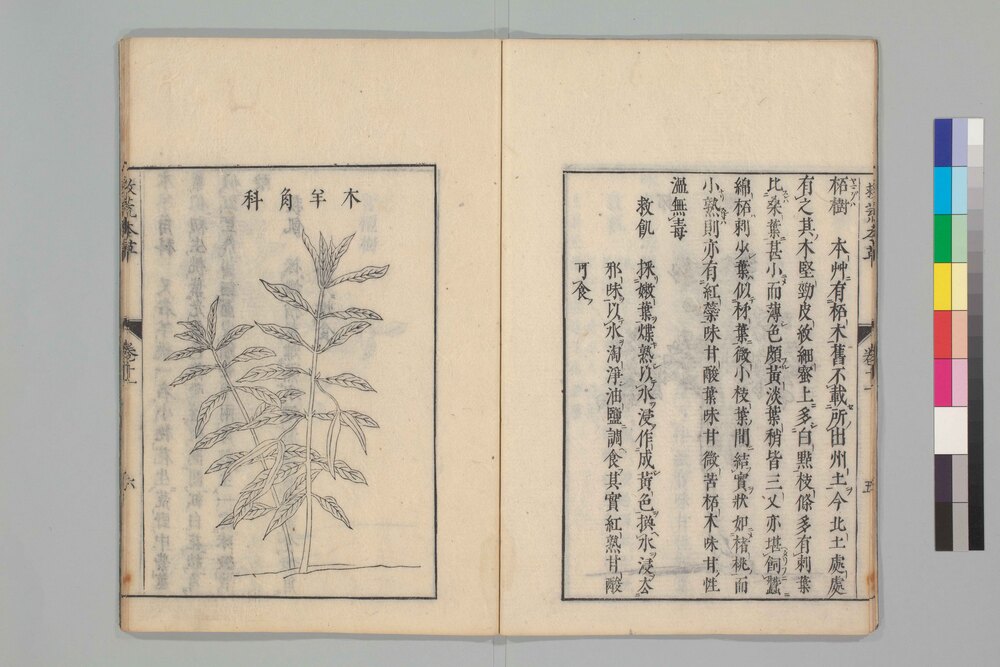 柘樹 本艸有柘木舊不載所出州土今北土處處
有之其木堅勁皮紋細蜜上多白㸃枝條多有刺葉
比桑葉甚小而薄色頗黃淡葉稍皆三叉亦堪飼蠶
綿柘刺少葉似柿葉微小枝葉間結實狀如楮桃而
小熟則亦有紅蘂味甘酸葉味甘微苦柘木味甘性
溫無毒
救飢 採嫩葉煠熟以水浸作成黃色換水浸去
邪味以水淘淨油鹽調食其實紅熟甘酸
可食
救荒本草
卷十一
五
木羊角科
救荒本草
卷十一
六